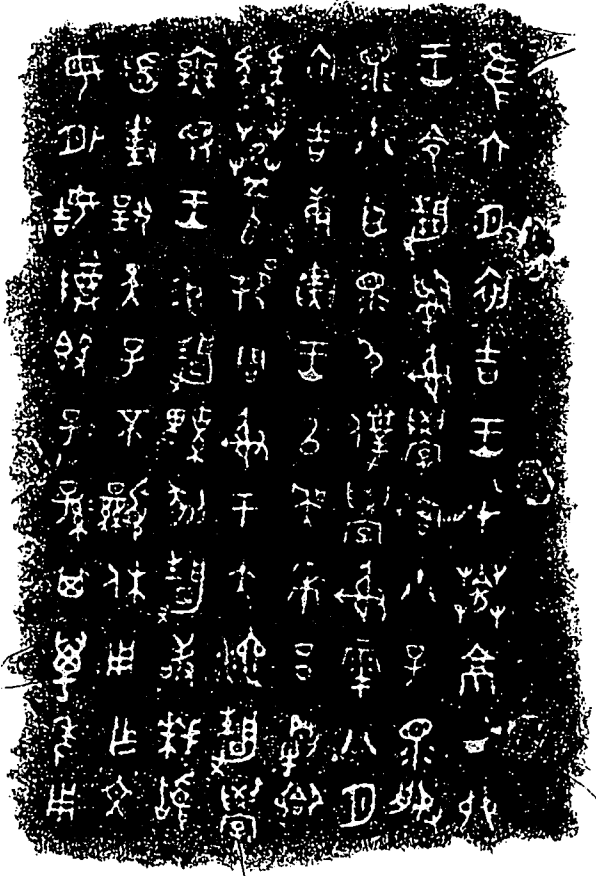 隹六月初吉王才𦮘京丁卯
王令靜𤔲射學宮小子眔服
眔小臣眔尸僕學射𩁹八月
初吉庚寅王以吳𠦪呂犅
𦮘𠂤邦周射于大池靜學
無王易靜鞞靜敢拜𩒨
首對揚天子不顯休用乍文
母外姞尊𣪘子孫其萬年用